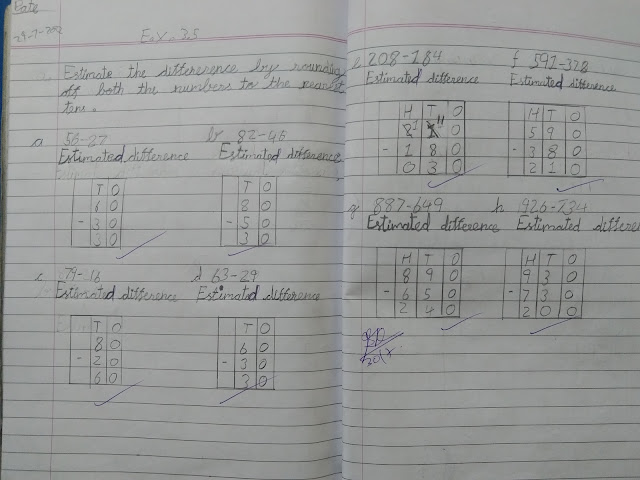 Date
29-7-202
Ex. 3.5
Estimate the difference by rounding
off both the numbers to the nearest
tens.
a 56-27 b 82-46
Estimated difference Estimated difference
T O T O
6 0 8 0
- 3 0 - 5 0
3 0 3 0
c 79-16 d 63-29
Estimated difference Estimated difference
T O T O
8 0 6 0
- 2 0 - 3 0
6 0 3 0
e 208-184 f 591-378
Estimated difference Estimated difference
H T O H T O
2 1 11 0 5 9 0
- 1 8 0 - 3 8 0
0 3 0 2 1 0
g 887-649 h 926-734
Estimated difference Estimated difference
H T O H T O
8 9 0 9 3 0
- 6 5 0 - 7 3 0
2 4 0 2 0 0